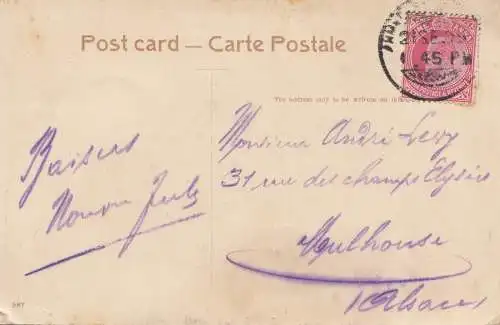 Post card — Carte Postale
45 PM
The address only to be written on this
Baisers
Monsieur André Levy
31 rue des champs Elysées
Mulhouse
Alsace
287